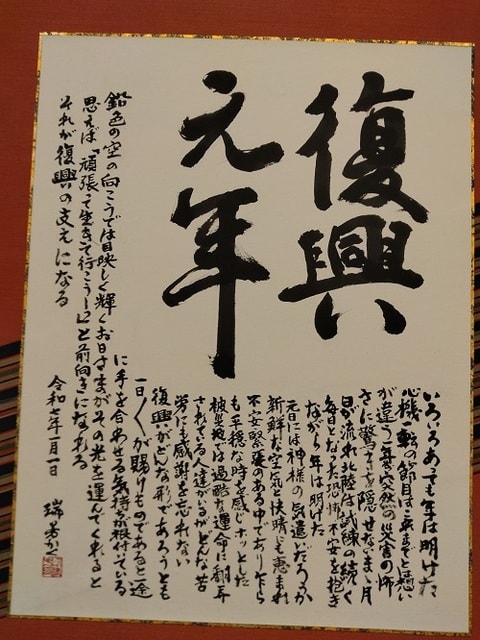 復興
元年
いろいろあっても年は明けた
心機一転の節目は去年までと想い
が違う年突然の災害の怖
さに驚きを隠せないまゝ月
日が流れ北陸は試練の続く
毎日となった恐怖不安を抱き
ながら年は明けた
元日には神様の気遣いだろうか
新鮮な空気と快晴にも恵まれ
不安緊張のある中でありながら
も平穏な時を感じホッとした
被災地では過酷な運命に翻弄
されている人達がいるがどんな苦
労にも感謝を忘れない
復興がどんな形であろうとも
一日一日が賜けものである一途
に手を合わせる気持が根付いている
鉛色の空の向こうでは目映しく輝くお日さまがその光を運んでくれると
思えば「頑張って生きて行こうー」と前向きになれる
それが復興の支えになる
令和七年一月一日